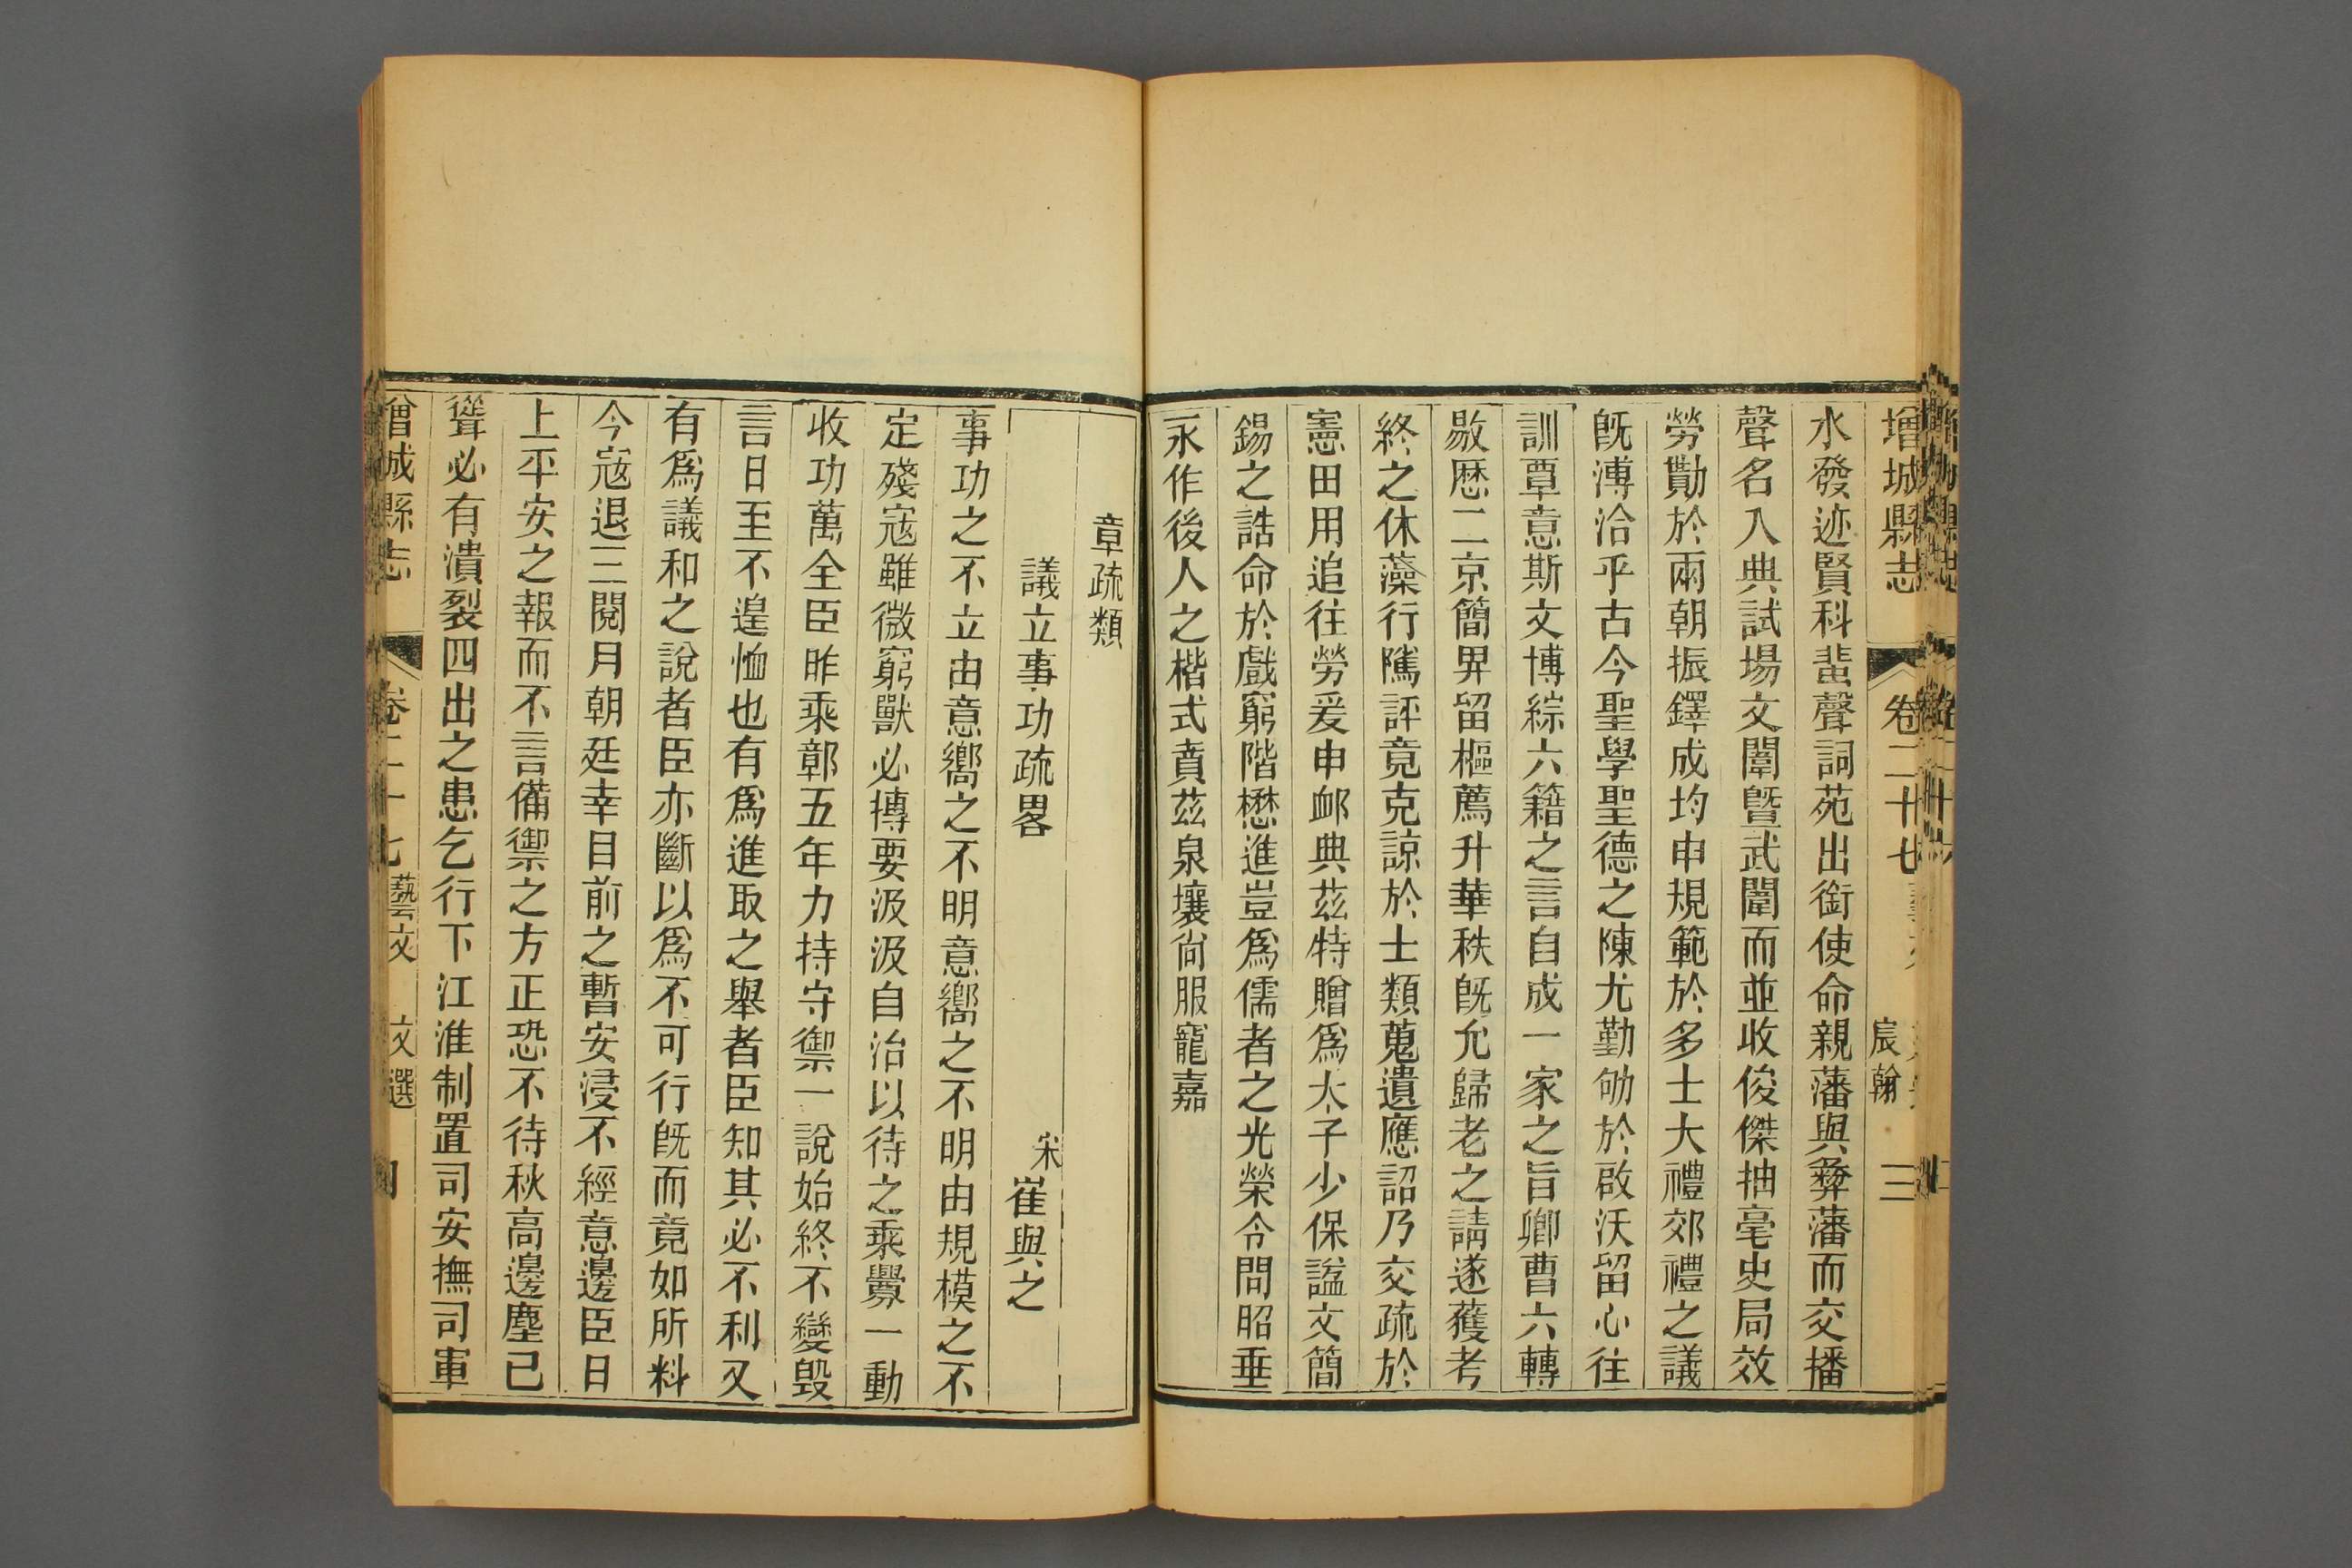 增城縣志 卷二十七 宸翰 三
水發迹賢科蜚聲詞苑出銜使命親藩與彝藩而交播
聲名入典試場文闈曁武闈而並收俊傑抽毫史局效
勞勩於兩朝振鐸成均申規範於多士大禮郊禮之議
旣溥洽乎古今聖學聖德之陳尤勤劬於啟沃留心往
訓覃意斯文博綜六籍之言自成一家之旨卿曹六轉
敭歷二京簡畀留樞薦升華秩旣允歸老之請遂蒦考
終之休藻行隲評竟克諒於士類蒐遺應詔乃交疏於
憲田用追往勞爰申䘏典茲特贈爲太子少保諡文簡
錫之誥命於戲窮階懋進豈爲儒者之光榮令問昭垂
永作後人之楷式賁茲泉壤尙服寵嘉
章疏類
議立事功疏畧 宋 崔與之
事功之不立由意嚮之不明意嚮之不明由規模之不
定殘寇雖微窮獸必摶要汲汲自治以待之乘釁一動
收功萬全臣昨乘鄣五年力持守禦一說始終不變毀
言日至不遑恤也有爲進取之舉者臣知其必不利又
有爲議和之說者臣亦斷以爲不可行旣而竟如所料
今寇退三閱月朝廷幸目前之暫安浸不經意邊臣日
上平安之報而不言備禦之方正恐不待秋高邊塵已
聳必有潰裂四出之患乞行下江淮制置司安撫司軍
增城縣志 卷二十七 藝文 文選 四